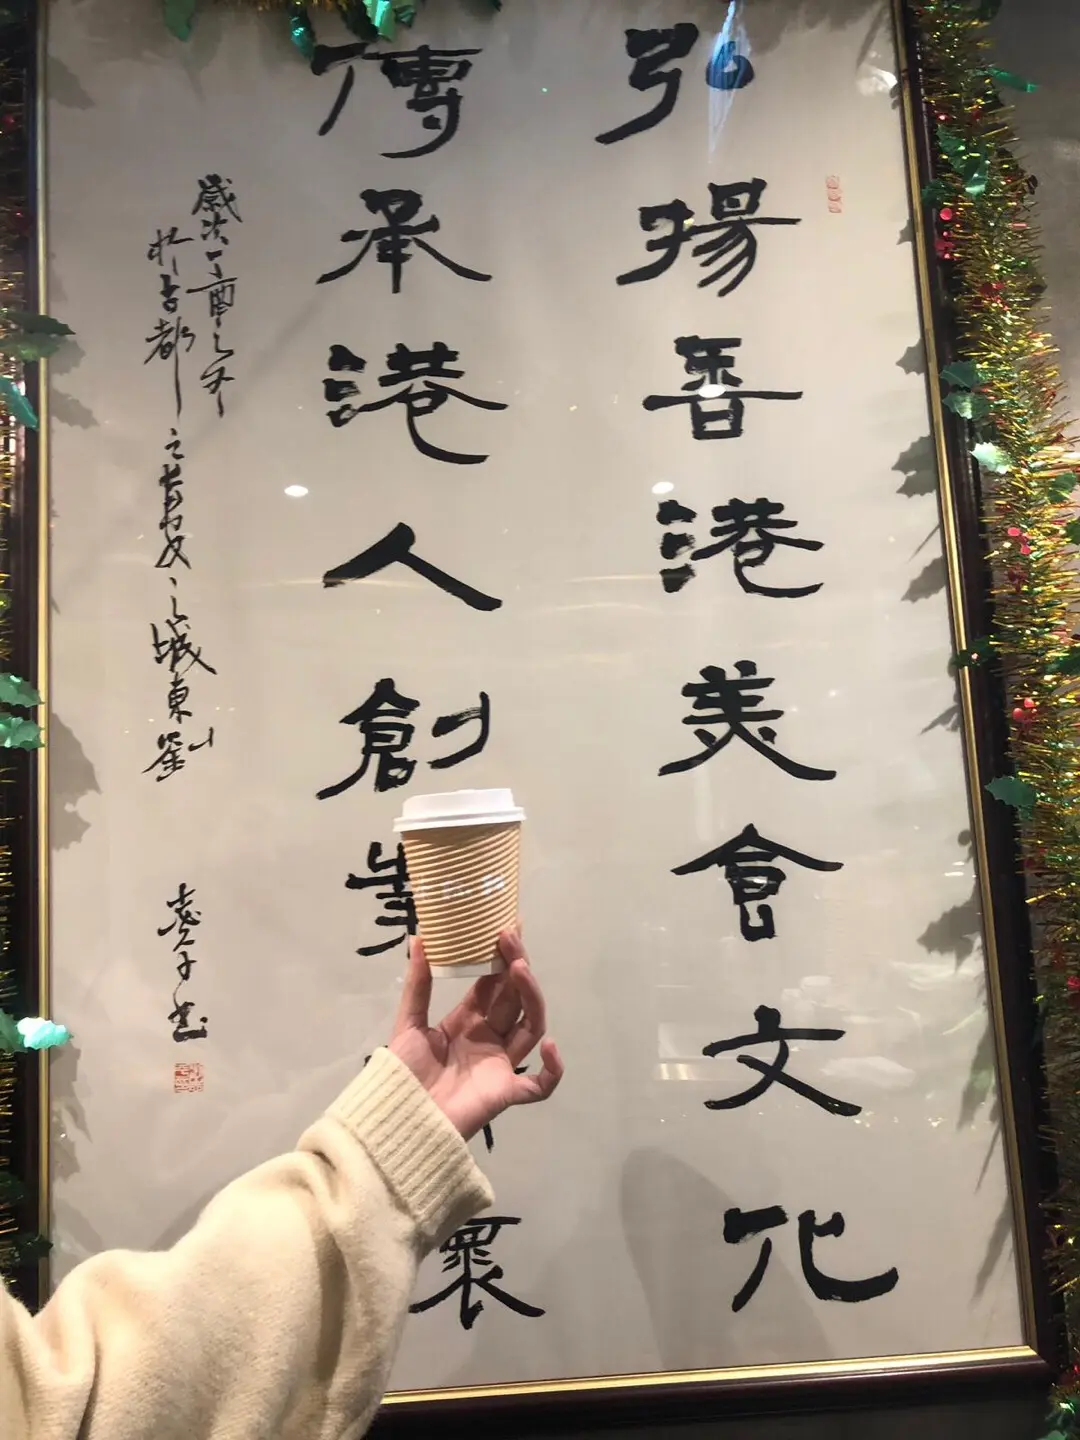 弘揚香港美食文化
傳承港人創業懷
歲次丁酉之冬
於古都之長安之城東劉